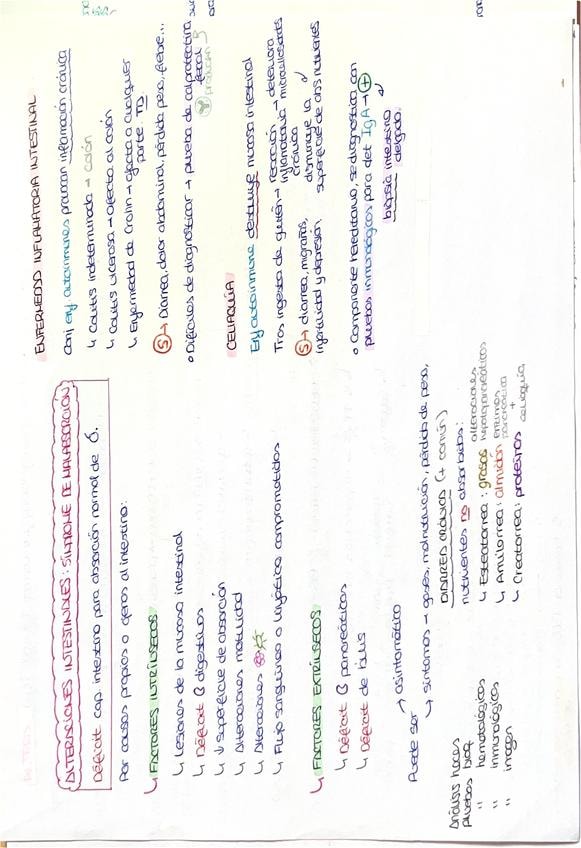 ALTERACIONES INTESTINALES: SÍNTROME DE MALABSORCIÓN
Déficit cap. intestino para absorción normal de Ó.
Por causas propias o ajenas al intestino:
↳ FACTORES INTRÍNSECOS
↳ Lesiones de la mucosa intestinal
↳ Déficit β digestivos
↳ ↓ superficie de absorción
↳ Alteraciones motilidad
↳ Alteraciones
↳ Flujo sanguíneo o linfático comprometidos
↳ FACTORES EXTRÍNSECOS
↳ Déficit β pancreáticos
↳ Déficit de bilis
Puede ser → asintomático
↳ síntomas → gases, malnutrición, pérdida de peso,
DIARREAS CRÓNICAS (+ común)
nutrientes no absorbidos:
↳ Esteatorrea: grasas alteraciones hepatopancreáticas
↳ Amilorrea: almidón enzimas pancreática
↳ Creatorrea: proteínas + celiaquía
Análisis heces
Pruebas bioq.
" hematológicas
" inmunológicas
" imagen
ENFERMEDAD INFLAMATORIA INTESTINAL
Conj enf autoinmunes provocan inflamación crónica
↳ Colitis indeterminada → colón
↳ Colitis ulcerosa → afecta al colón
↳ Enfermedad de Crohn → afecta a cualquier
parte TD.
Ⓢ → Diarrea, dolor abdominal, pérdida peso, fiebre...
• Difíciles de diagnosticar → prueba de calprotectina
fecal
CELIAQUÍA
Enf autoinmune destruye mucosa intestinal
Tras ingesta de gluten → reacción → deteriora
inflamatoria microvellosidades
crónica
Ⓢ → diarrea, migrañas, disminuye la
infertilidad y depresión superficie de abs nutrientes
• Componente hereditario, se diagnostica con
pruebas inmunológicas para det IgA → ⊕
biopsia intestino
delgado.